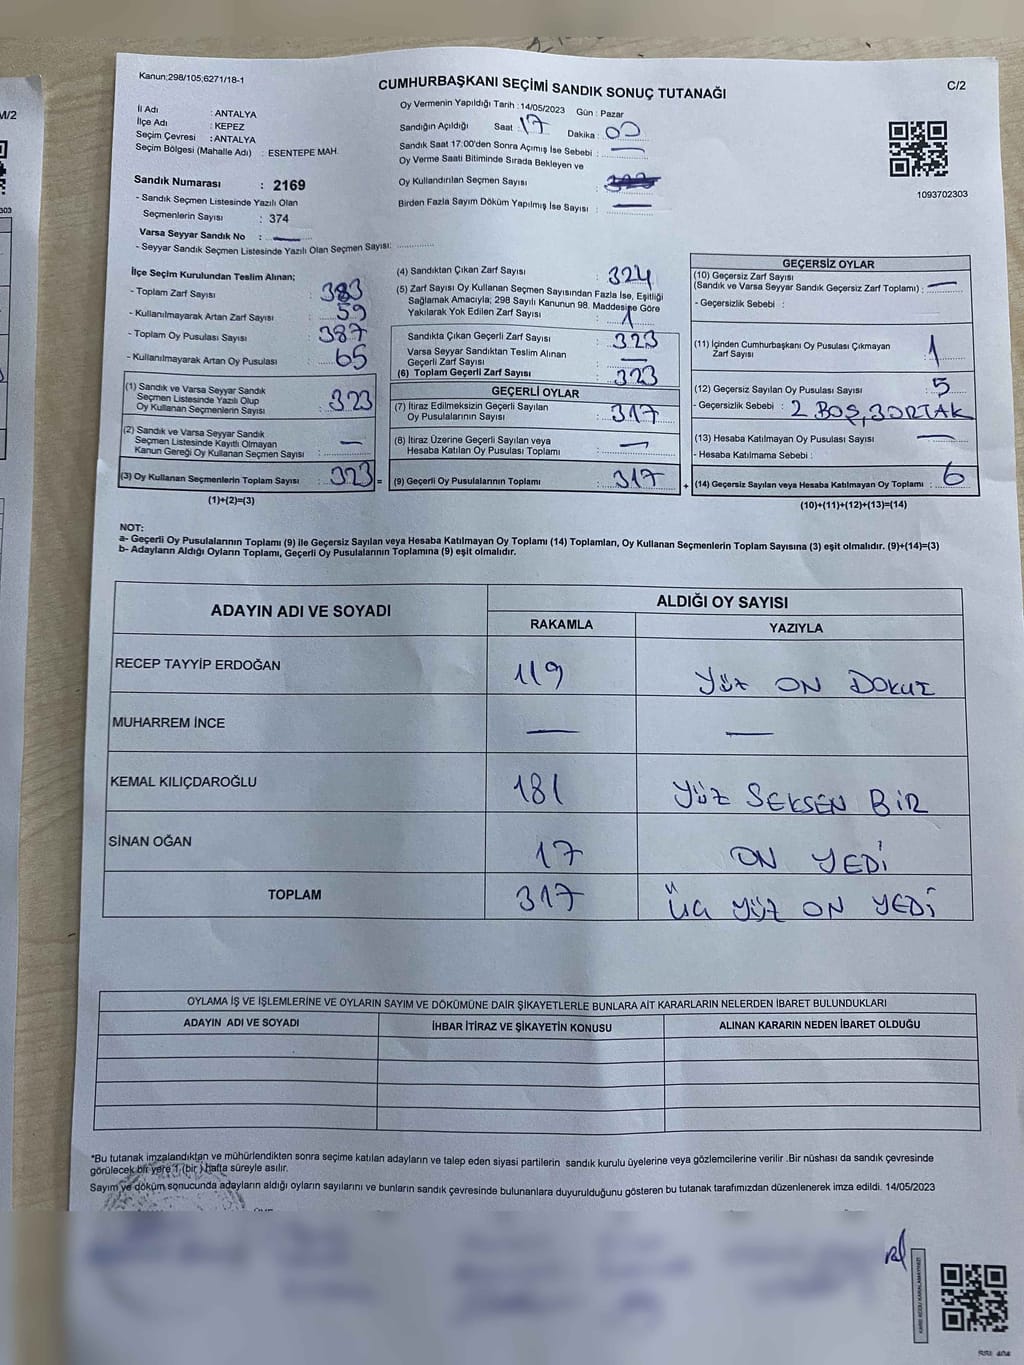 M/2
303
Kanun;298/105;6271/18-1
CUMHURBAŞKANI SEÇİMİ SANDIK SONUÇ TUTANAĞI
C/2
İl Adı : ANTALYA
İlçe Adı : KEPEZ
Seçim Çevresi : ANTALYA
Seçim Bölgesi (Mahalle Adı) : ESENTEPE MAH.
Oy Vermenin Yapıldığı Tarih :14/05/2023 Gün : Pazar
Sandığın Açıldığı Saat : 17 Dakika : 00
Sandık Saat 17:00'den Sonra Açımış İse Sebebi : —
Oy Verme Saati Bitiminde Sırada Bekleyen ve
Oy Kullandırılan Seçmen Sayısı :
Birden Fazla Sayım Döküm Yapılmış İse Sayısı : —
1093702303
Sandık Numarası : 2169
- Sandık Seçmen Listesinde Yazılı Olan
Seçmenlerin Sayısı : 374
Varsa Seyyar Sandık No : —
- Seyyar Sandık Seçmen Listesinde Yazılı Olan Seçmen Sayısı: ............
İlçe Seçim Kurulundan Teslim Alınan;
- Toplam Zarf Sayısı : 383
- Kullanılmayarak Artan Zarf Sayısı : 59
- Toplam Oy Pusulası Sayısı : 387
- Kullanılmayarak Artan Oy Pusulası : 65
(1) Sandık ve Varsa Seyyar Sandık
Seçmen Listesinde Yazılı Olup
Oy Kullanan Seçmenlerin Sayısı : 323
(2) Sandık ve Varsa Seyyar Sandık
Seçmen Listesinde Kayıtlı Olmayan
Kanun Gereği Oy Kullanan Seçmen Sayısı : —
(3) Oy Kullanan Seçmenlerin Toplam Sayısı : 323 =
(1)+(2)=(3)
(4) Sandıktan Çıkan Zarf Sayısı : 324
(5) Zarf Sayısı Oy Kullanan Seçmen Sayısından Fazla İse, Eşitliği
Sağlamak Amacıyla; 298 Sayılı Kanunun 98. Maddesine Göre
Yakılarak Yok Edilen Zarf Sayısı : 1
Sandıkta Çıkan Geçerli Zarf Sayısı : 323
Varsa Seyyar Sandıktan Teslim Alınan
Geçerli Zarf Sayısı : —
(6) Toplam Geçerli Zarf Sayısı : 323
GEÇERLİ OYLAR
(7) İtiraz Edilmeksizin Geçerli Sayılan
Oy Pusulalarının Sayısı : 317
(8) İtiraz Üzerine Geçerli Sayılan veya
Hesaba Katılan Oy Pusulası Toplamı : —
(9) Geçerli Oy Pusulalarının Toplamı : 317 +
GEÇERSİZ OYLAR
(10) Geçersiz Zarf Sayısı
(Sandık ve Varsa Seyyar Sandık Geçersiz Zarf Toplamı) : —
- Geçersizlik Sebebi :
(11) İçinden Cumhurbaşkanı Oy Pusulası Çıkmayan
Zarf Sayısı : 1
(12) Geçersiz Sayılan Oy Pusulası Sayısı : 5
- Geçersizlik Sebebi : 2 BOŞ, 3 ORTAK
(13) Hesaba Katılmayan Oy Pusulası Sayısı : —
- Hesaba Katılmama Sebebi :
(14) Geçersiz Sayılan veya Hesaba Katılmayan Oy Toplamı : 6
(10)+(11)+(12)+(13)=(14)
NOT:
a- Geçerli Oy Pusulalarının Toplamı (9) ile Geçersiz Sayılan veya Hesaba Katılmayan Oy Toplamı (14) Toplamları, Oy Kullanan Seçmenlerin Toplam Sayısına (3) eşit olmalıdır. (9)+(14)=(3)
b- Adayların Aldığı Oyların Toplamı, Geçerli Oy Pusulalarının Toplamına (9) eşit olmalıdır.
ADAYIN ADI VE SOYADI ALDIĞI OY SAYISI
RAKAMLA YAZIYLA
RECEP TAYYİP ERDOĞAN 119 YÜZ ON DOKUZ
MUHARREM İNCE — —
KEMAL KILIÇDAROĞLU 181 YÜZ SEKSEN BİR
SİNAN OĞAN 17 ON YEDİ
TOPLAM 317 ÜÇ YÜZ ON YEDİ
OYLAMA İŞ VE İŞLEMLERİNE VE OYLARIN SAYIM VE DÖKÜMÜNE DAİR ŞİKAYETLERLE BUNLARA AİT KARARLARIN NELERDEN İBARET BULUNDUKLARI
ADAYIN ADI VE SOYADI İHBAR İTİRAZ VE ŞİKAYETİN KONUSU ALINAN KARARIN NEDEN İBARET OLDUĞU
*Bu tutanak imzalandıktan ve mühürlendikten sonra seçime katılan adayların ve talep eden siyasi partilerin sandık kurulu üyelerine veya gözlemcilerine verilir .Bir nüshası da sandık çevresinde
görülecek bir yere 1 (bir ) hafta süreyle asılır.
Sayım ve döküm sonucunda adayların aldığı oyların sayılarını ve bunların sandık çevresinde bulunanlara duyurulduğunu gösteren bu tutanak tarafımızdan düzenlenerek imza edildi. 14/05/2023